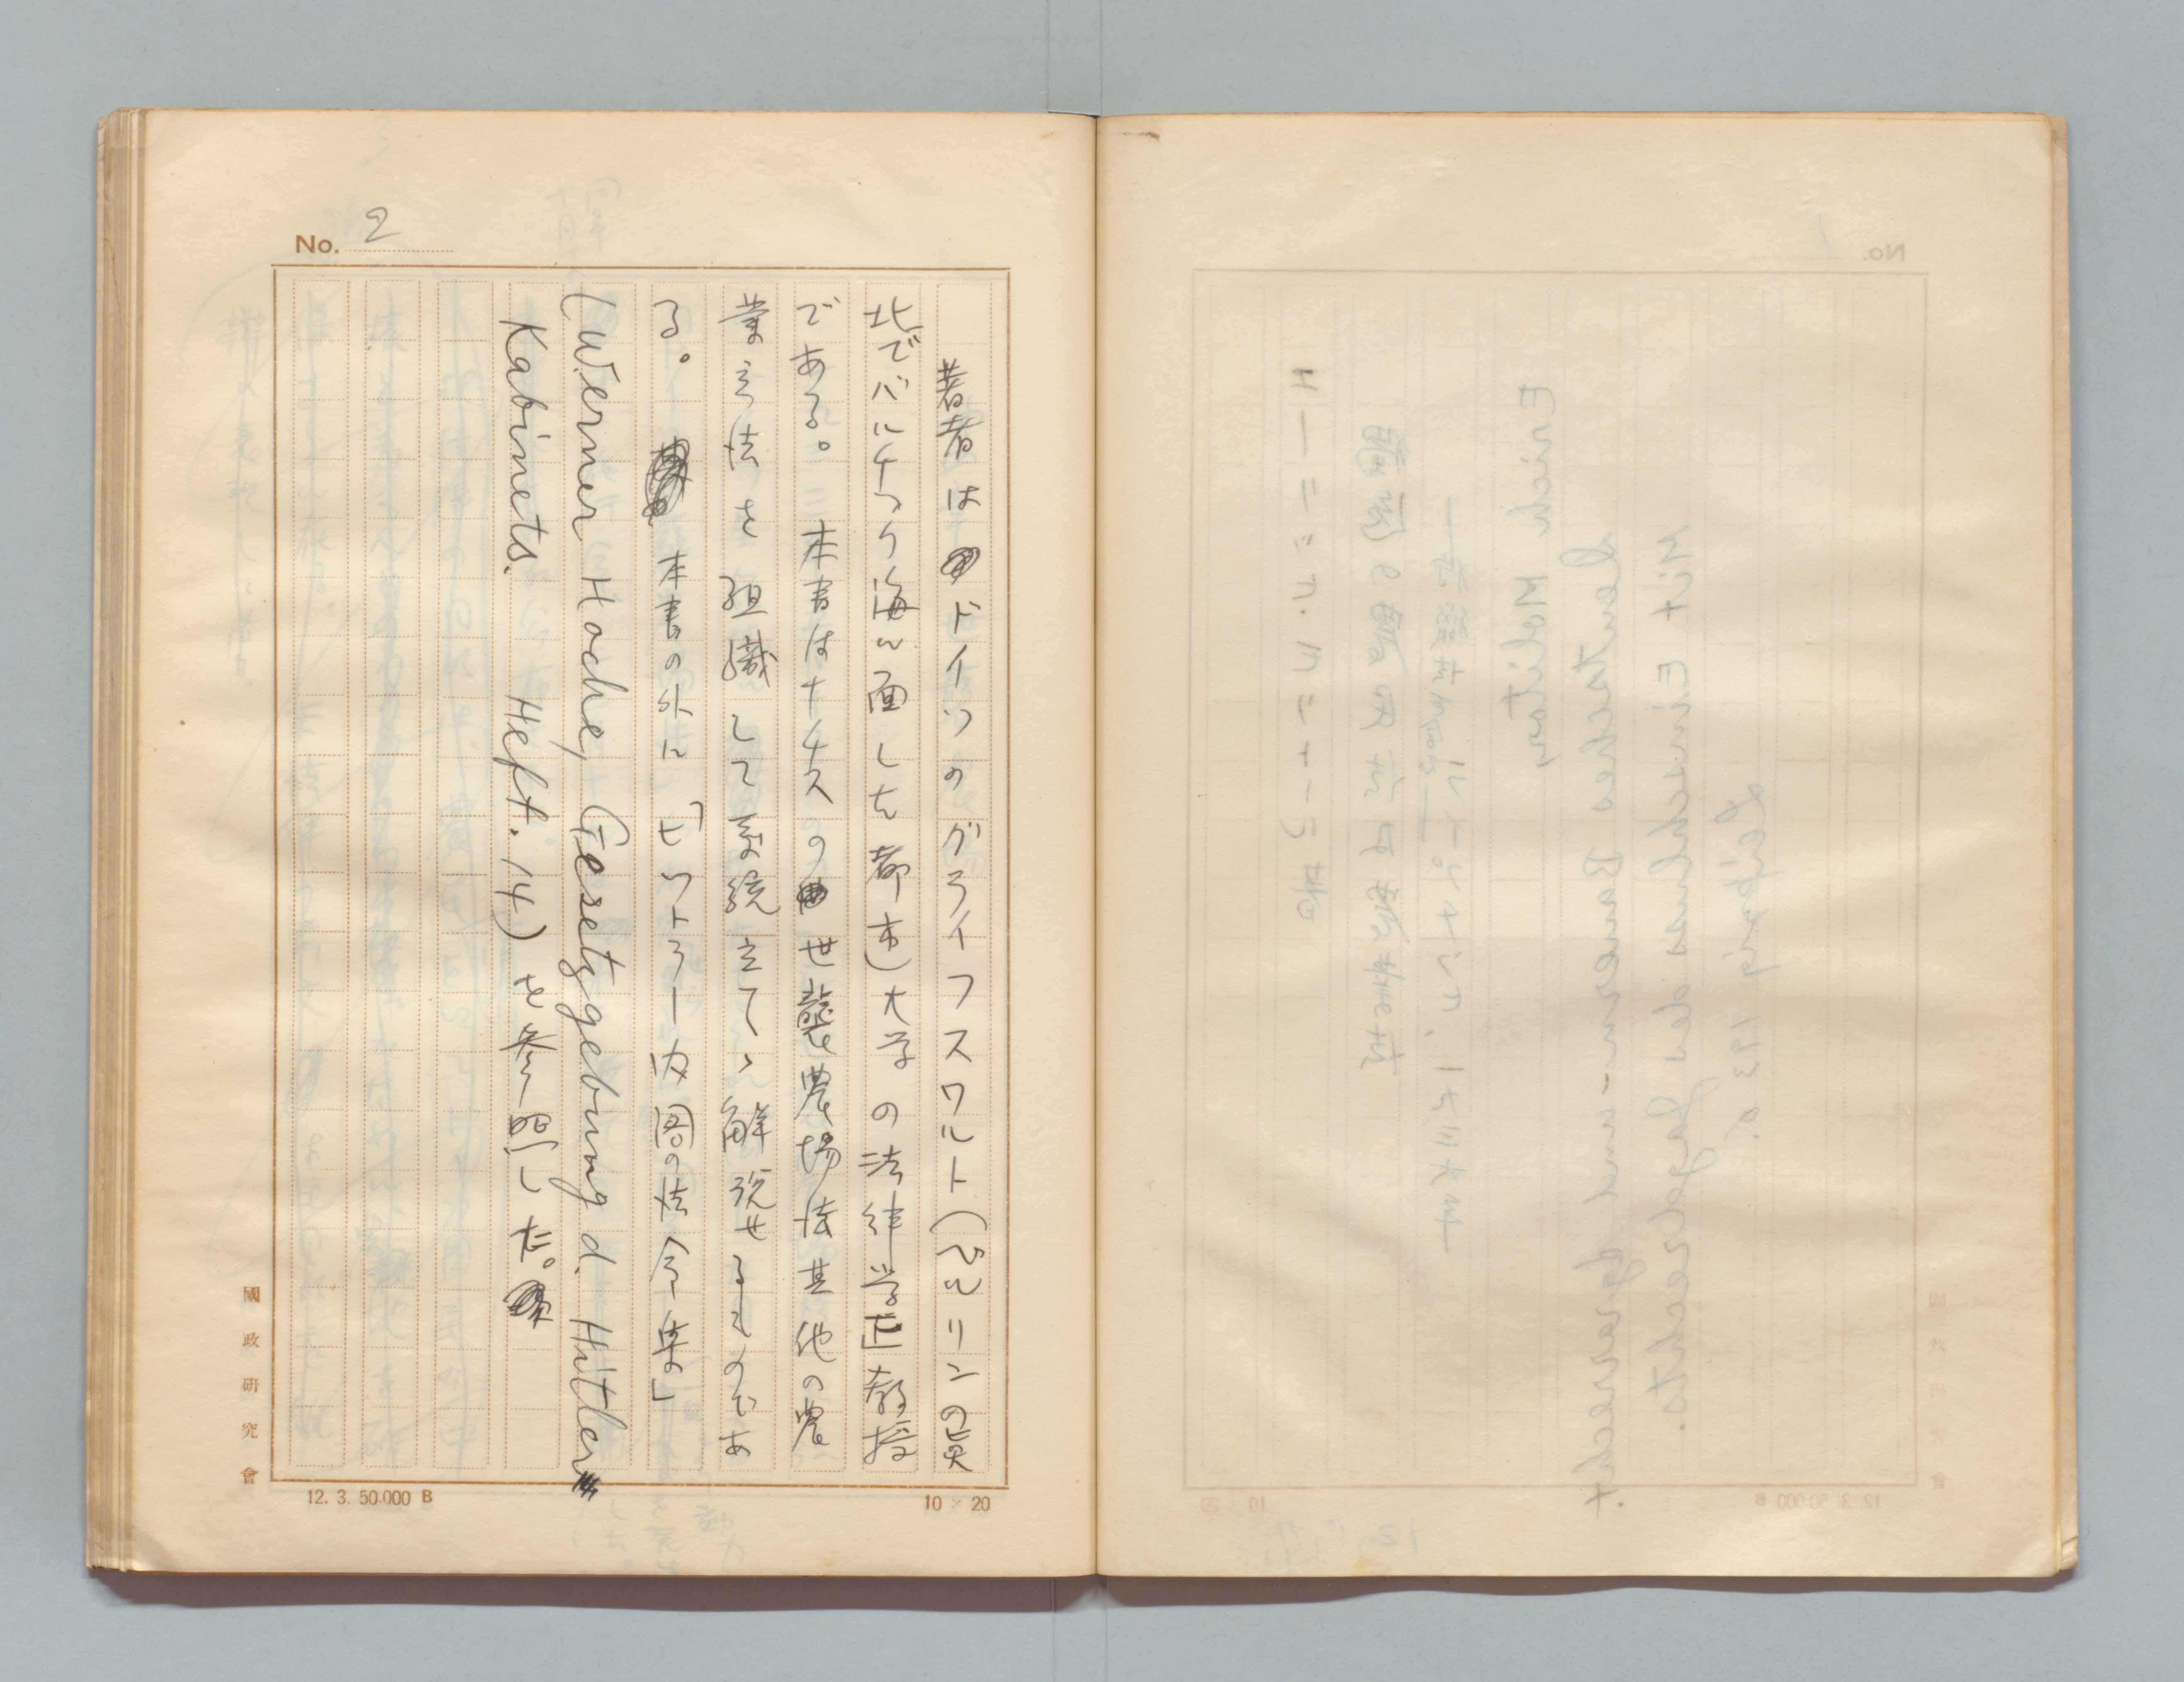 No. 2
著者はドイツのグライフスワルト(ベルリンの真
北でバルチック海に面した都市)大学の法律学正教授
である。本書はナチスの世襲農場法其他の農
業立法を組織して系統立てゝ解説せるものであ
る。本書の外に「ヒツトラー内閣の法令集」
(Werner Hoche, Gesetzgebung d. Hitler
Kabinets. Heft. 14)を参照した。
國政研究會
12. 3. 50.000 B
10 × 20